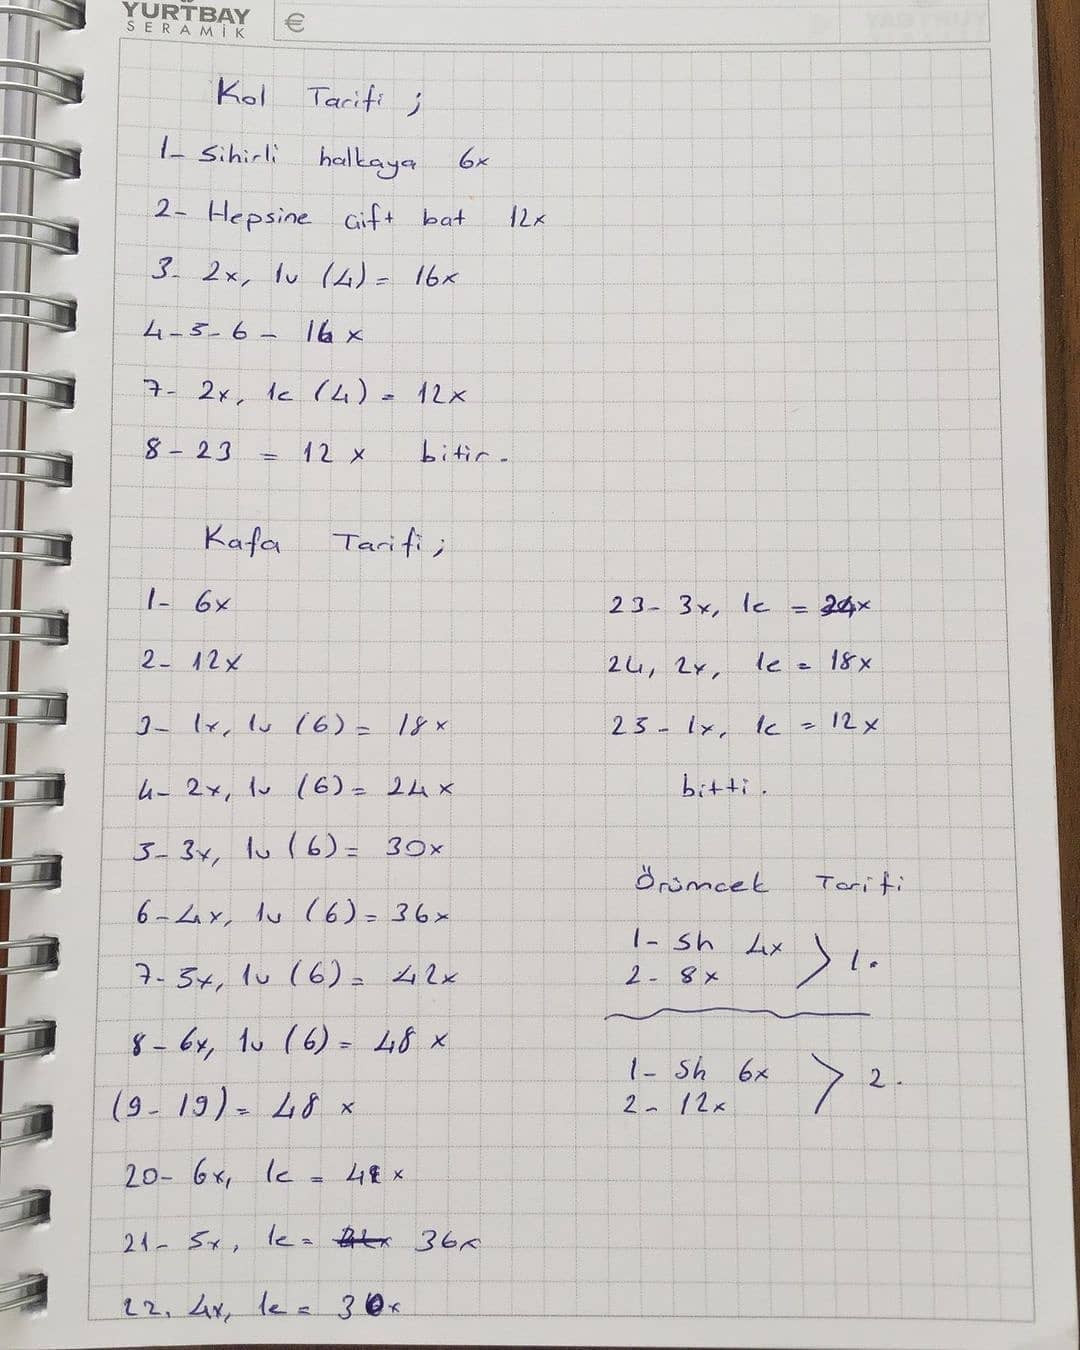 YURTBAY
SERAMİK
€
Kol Tarifi ;
1- Sihirli halkaya 6x
2- Hepsine çift bat 12x
3- 2x, 1v (4) = 16x
4-5-6- 16x
7- 2x, 1c (4) = 12x
8-23 = 12x bitir.
Kafa Tarifi ;
1- 6x
2- 12x
3- 1x, 1v (6) = 18x
4- 2x, 1v (6) = 24x
5- 3x, 1v (6) = 30x
6- 4x, 1v (6) = 36x
7- 5x, 1v (6) = 42x
8- 6x, 1v (6) = 48x
(9-19) = 48x
20- 6x, 1c = 42x
21- 5x, 1c = 36x
22, 4x, 1c = 30x
23- 3x, 1c = 24x
24, 2x, 1c = 18x
25- 1x, 1c = 12x
bitti.
Örümcek Tarifi
1- Sh 4x
2- 8x
> 1.
1- Sh 6x
2- 12x
> 2.